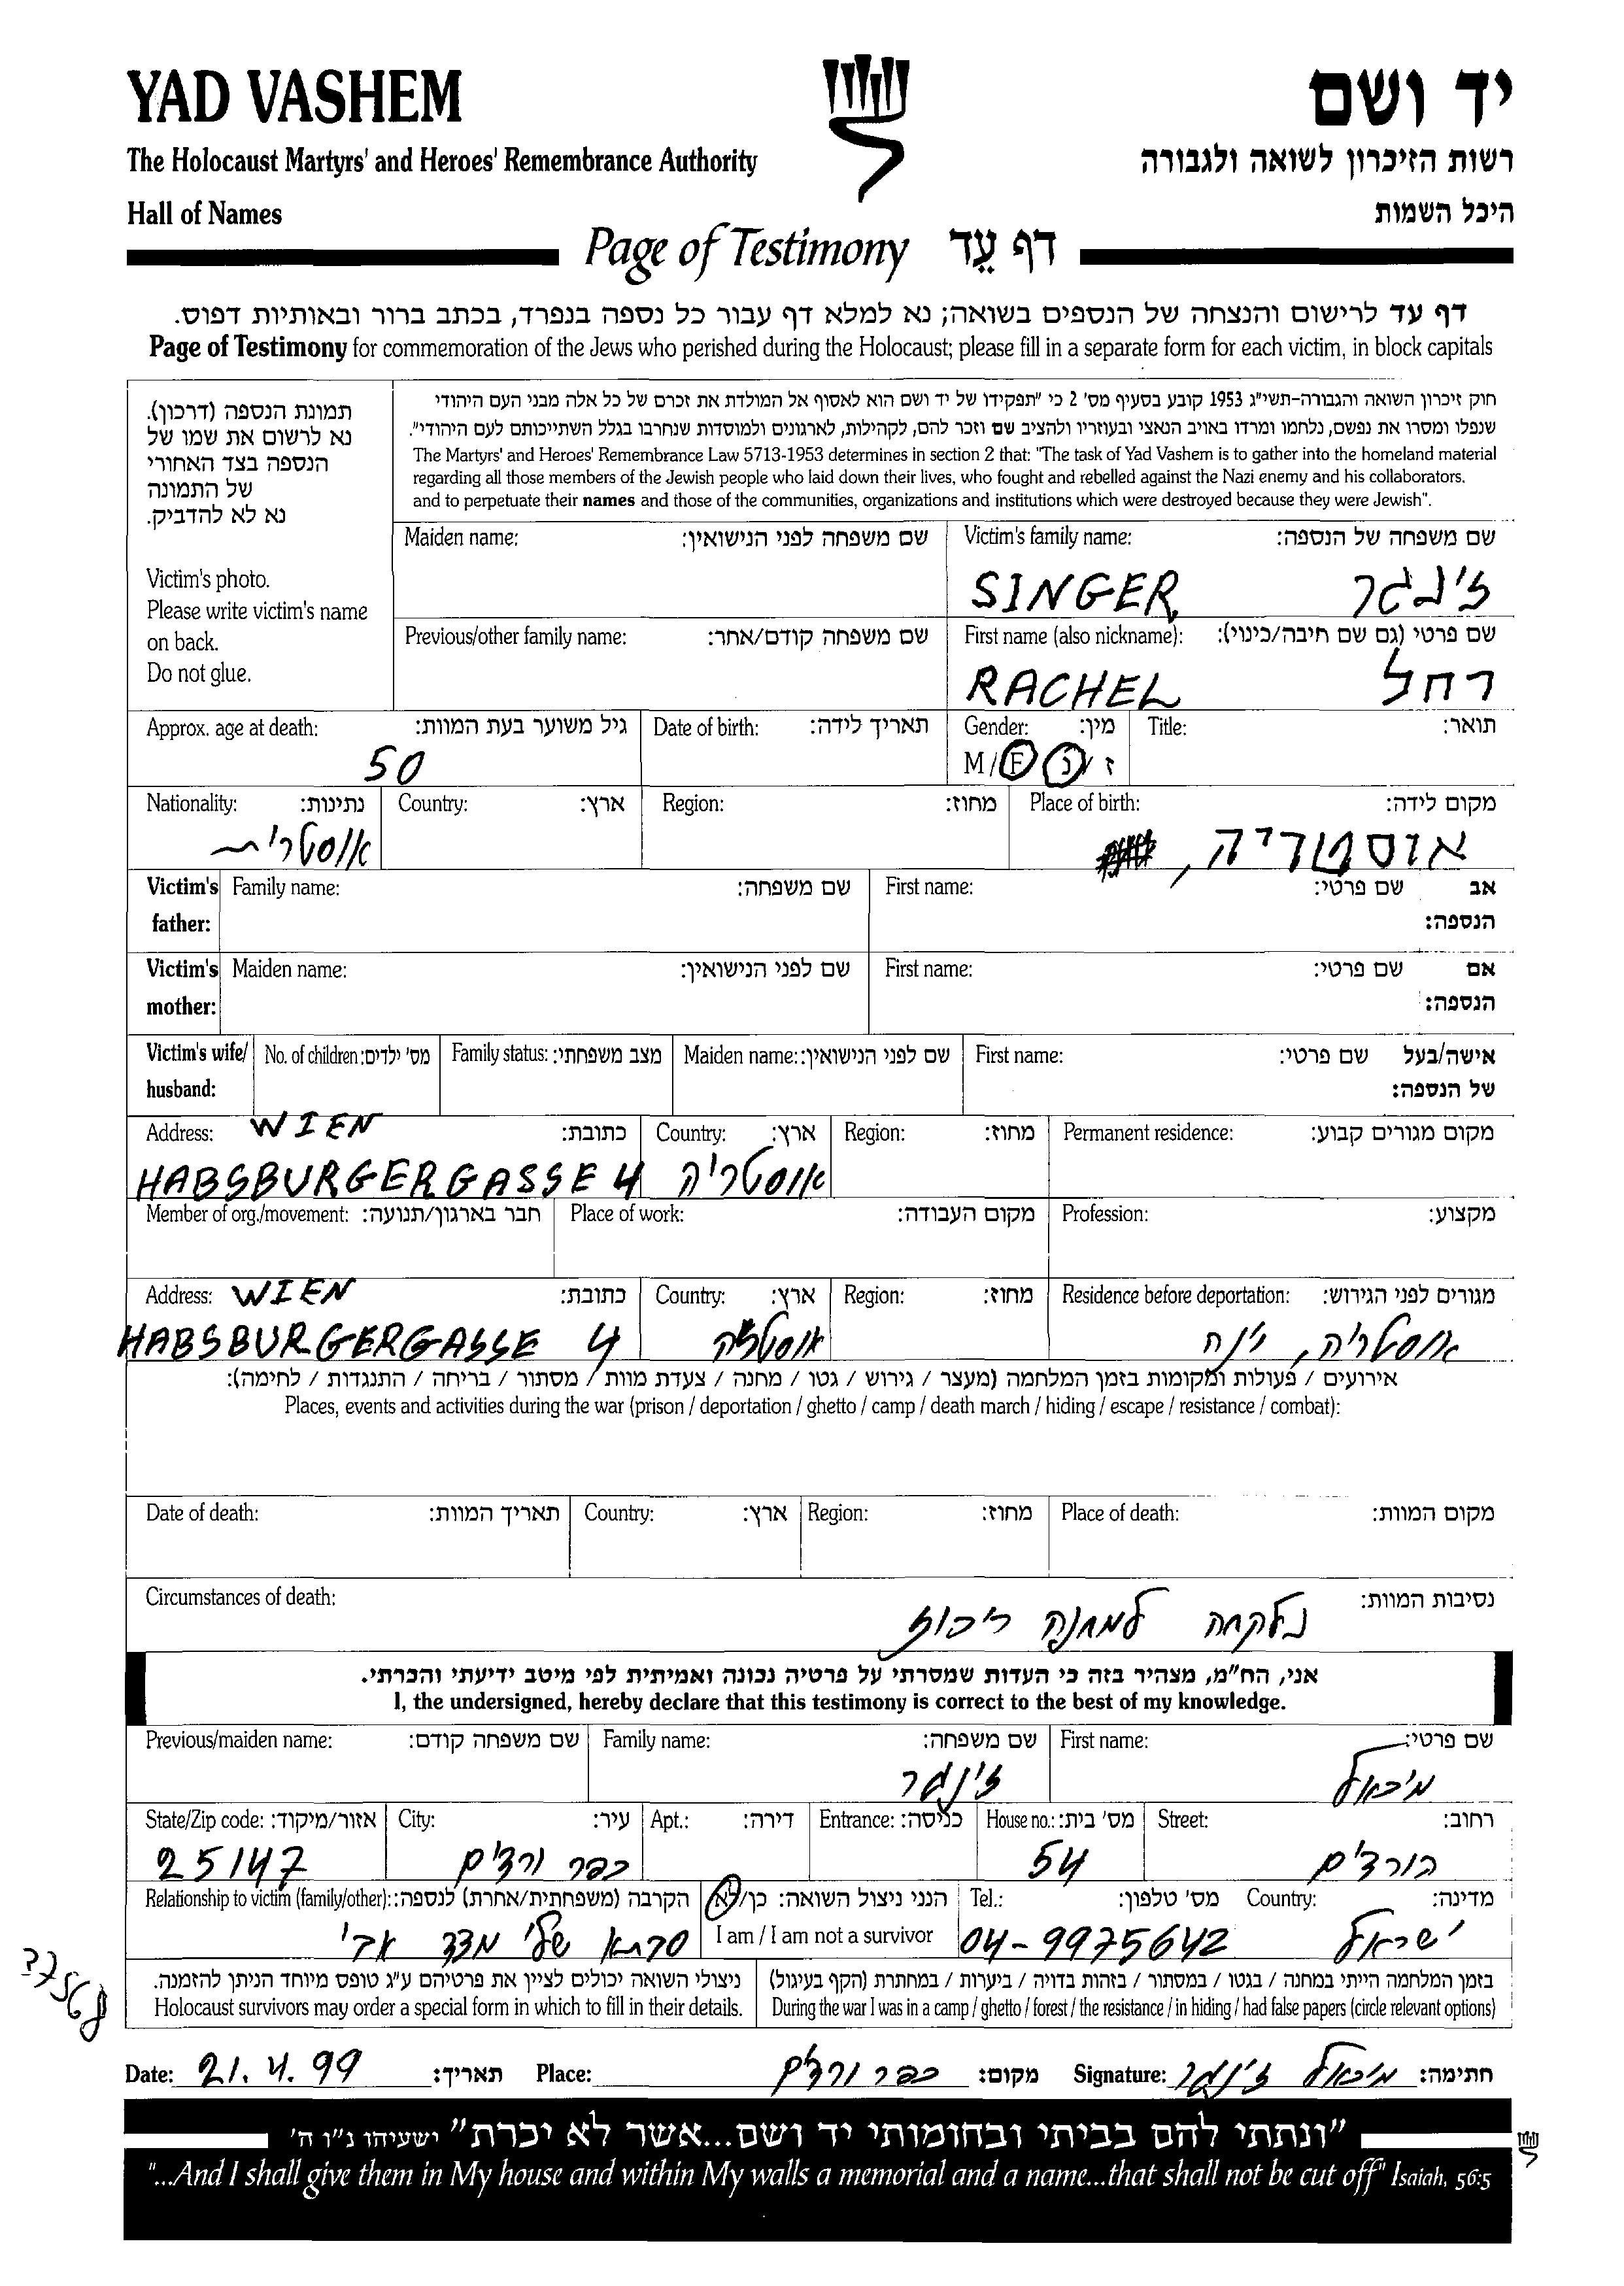 YAD VASHEM
יד ושם
The Holocaust Martyrs' and Heroes' Remembrance Authority
רשות הזיכרון לשואה ולגבורה
Hall of Names
היכל השמות
Page of Testimony דף עֵד
דף עד לרישום והנצחה של הנספים בשואה; נא למלא דף עבור כל נספה בנפרד, בכתב ברור ובאותיות דפוס.
Page of Testimony for commemoration of the Jews who perished during the Holocaust; please fill in a separate form for each victim, in block capitals
תמונת הנספה (דרכון).
נא לרשום את שמו של
הנספה בצד האחורי
של התמונה
נא לא להדביק.
Victim's photo.
Please write victim's name
on back.
Do not glue.
חוק זיכרון השואה והגבורה-תשי"ג 1953 קובע בסעיף מס' 2 כי "תפקידו של יד ושם הוא לאסוף אל המולדת את זכרם של כל אלה מבני העם היהודי
שנפלו ומסרו את נפשם, נלחמו ומרדו באויב הנאצי ובעוזריו ולהציב שם וזכר להם, לקהילות, לארגונים ולמוסדות שנחרבו בגלל השתייכותם לעם היהודי".
The Martyrs' and Heroes' Remembrance Law 5713-1953 determines in section 2 that: "The task of Yad Vashem is to gather into the homeland material
regarding all those members of the Jewish people who laid down their lives, who fought and rebelled against the Nazi enemy and his collaborators.
and to perpetuate their names and those of the communities, organizations and institutions which were destroyed because they were Jewish".
Maiden name: שם משפחה לפני הנישואין: Victim's family name: שם משפחה של הנספה:
SINGER זינגר
Previous/other family name: שם משפחה קודם/אחר: First name (also nickname): שם פרטי (גם שם חיבה/כינוי):
RACHEL רחל
Approx. age at death: גיל משוער בעת המוות: Date of birth: תאריך לידה: Gender: מין: Title: תואר:
50 M / F ז / נ
Nationality: נתינות: Country: ארץ: Region: מחוז: Place of birth: מקום לידה:
אוסטרית אוסטריה,
Victim's father: Family name: שם משפחה: First name: שם פרטי: אב הנספה:
Victim's mother: Maiden name: שם לפני הנישואין: First name: שם פרטי: אם הנספה:
Victim's wife/ husband: No. of children: מס' ילדים: Family status: מצב משפחתי: Maiden name: שם לפני הנישואין: First name: שם פרטי: אישה/בעל של הנספה:
Address: WIEN כתובת: Country: ארץ: Region: מחוז: Permanent residence: מקום מגורים קבוע:
HABSBURGERGASSE 4 אוסטריה
Member of org./movement: חבר בארגון/תנועה: Place of work: מקום העבודה: Profession: מקצוע:
Address: WIEN כתובת: Country: ארץ: Region: מחוז: Residence before deportation: מגורים לפני הגירוש:
HABSBURGERGASSE 4 אוסטריה אוסטריה, וינה
אירועים / פעולות ומקומות בזמן המלחמה (מעצר / גירוש / גטו / מחנה / צעדת מוות / מסתור / בריחה / התנגדות / לחימה):
Places, events and activities during the war (prison / deportation / ghetto / camp / death march / hiding / escape / resistance / combat):
Date of death: תאריך המוות: Country: ארץ: Region: מחוז: Place of death: מקום המוות:
Circumstances of death: נסיבות המוות:
נלקחה למחנה ריכוז
אני, הח"מ, מצהיר בזה כי העדות שמסרתי על פרטיה נכונה ואמיתית לפי מיטב ידיעתי והכרתי.
I, the undersigned, hereby declare that this testimony is correct to the best of my knowledge.
Previous/maiden name: שם משפחה קודם: Family name: שם משפחה: First name: שם פרטי:
זינגר מיכאל
State/Zip code: אזור/מיקוד: City: עיר: Apt.: דירה: Entrance: כניסה: House no.: מס' בית: Street: רחוב:
25147 כפר ורדים 54 הורדים
Relationship to victim (family/other): הקרבה (משפחתית/אחרת) לנספה: הנני ניצול השואה: כן/לא Tel.: מס' טלפון: Country: מדינה:
סבתא שלי מצד אבי I am / I am not a survivor 04-9975642 ישראל
ניצולי השואה יכולים לציין את פרטיהם ע"ג טופס מיוחד הניתן להזמנה. בזמן המלחמה הייתי במחנה / בגטו / במסתור / בזהות בדויה / ביערות / במחתרת (הקף בעיגול)
Holocaust survivors may order a special form in which to fill in their details. During the war I was in a camp / ghetto / forest / the resistance / in hiding / had false papers (circle relevant options)
Date: 21.4.99 תאריך: Place: כפר ורדים מקום: Signature: מיכאל זינגר חתימה:
"ונתתי להם בביתי ובחומותי יד ושם...אשר לא יכרת" ישעיהו נ"ו ה'
"...And I shall give them in My house and within My walls a memorial and a name...that shall not be cut off" Isaiah, 56:5